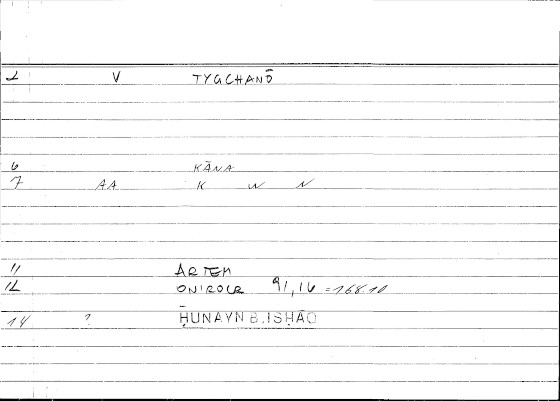 2 V TYGCHANŌ
6 KĀNA
7 AA K W N
11 ARTEM
12 ONIROCR 91,16 = 168 10
14 ? ḤUNAYN B. ISḤĀQ